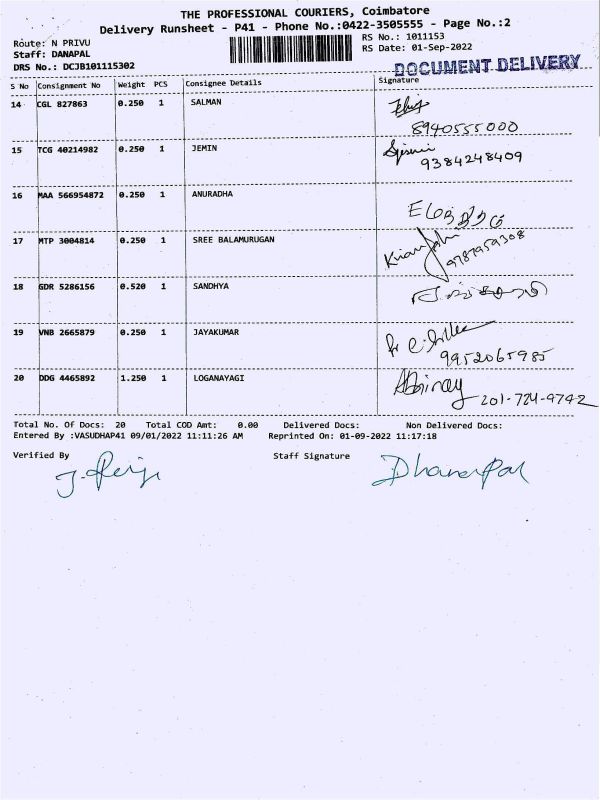 THE PROFESSIONAL COURIERS, Coimbatore
Delivery Runsheet - P41 - Phone No.:0422-3505555 - Page No.:2
Route: N PRIVU
Staff: DANAPAL
DRS No.: DCJB101115302
RS No.: 1011153
RS Date: 01-Sep-2022
DOCUMENT DELIVERY
S No Consignment No Weight PCS Consignee Details Signature
14 CGL 827863 0.250 1 SALMAN
8940555000
15 TCG 40214982 0.250 1 JEMIN
9384248409
16 MAA 566954872 0.250 1 ANURADHA
17 MTP 3004814 0.250 1 SREE BALAMURUGAN
9787959308
18 GDR 5286156 0.520 1 SANDHYA
19 VNB 2665879 0.250 1 JAYAKUMAR
9952065985
20 DDG 4465892 1.250 1 LOGANAYAGI
Abinay
201-724-9742
Total No. Of Docs: 20 Total COD Amt: 0.00 Delivered Docs: Non Delivered Docs:
Entered By :VASUDHAP41 09/01/2022 11:11:26 AM Reprinted On: 01-09-2022 11:17:18
Verified By Staff Signature
Dhanapal